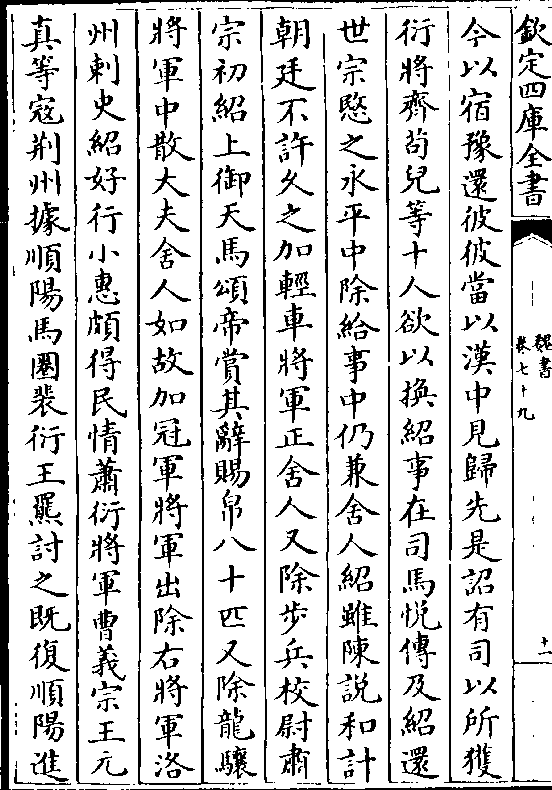 欽定四庫全書
魏書
卷七十九
十一
今以宿豫還彼彼當以漢中見歸先是詔有司以所獲
衍將齊茍兒等十人欲以換紹事在司馬悦傳及紹還
世宗愍之永平中除給事中仍兼舍人紹雖陳說和計
朝廷不許久之加輕車將軍正舍人又除步兵校尉肅
宗初紹上御天馬頌帝賞其辭賜帛八十匹又除龍驤
將軍中散大夫舍人如故加冠軍將軍出除右將軍洛
州刺史紹好行小惠頗得民情蕭衍將軍曹義宗王元
真等寇荆州據順陽馬圈裴衍王羆討之既復順陽進